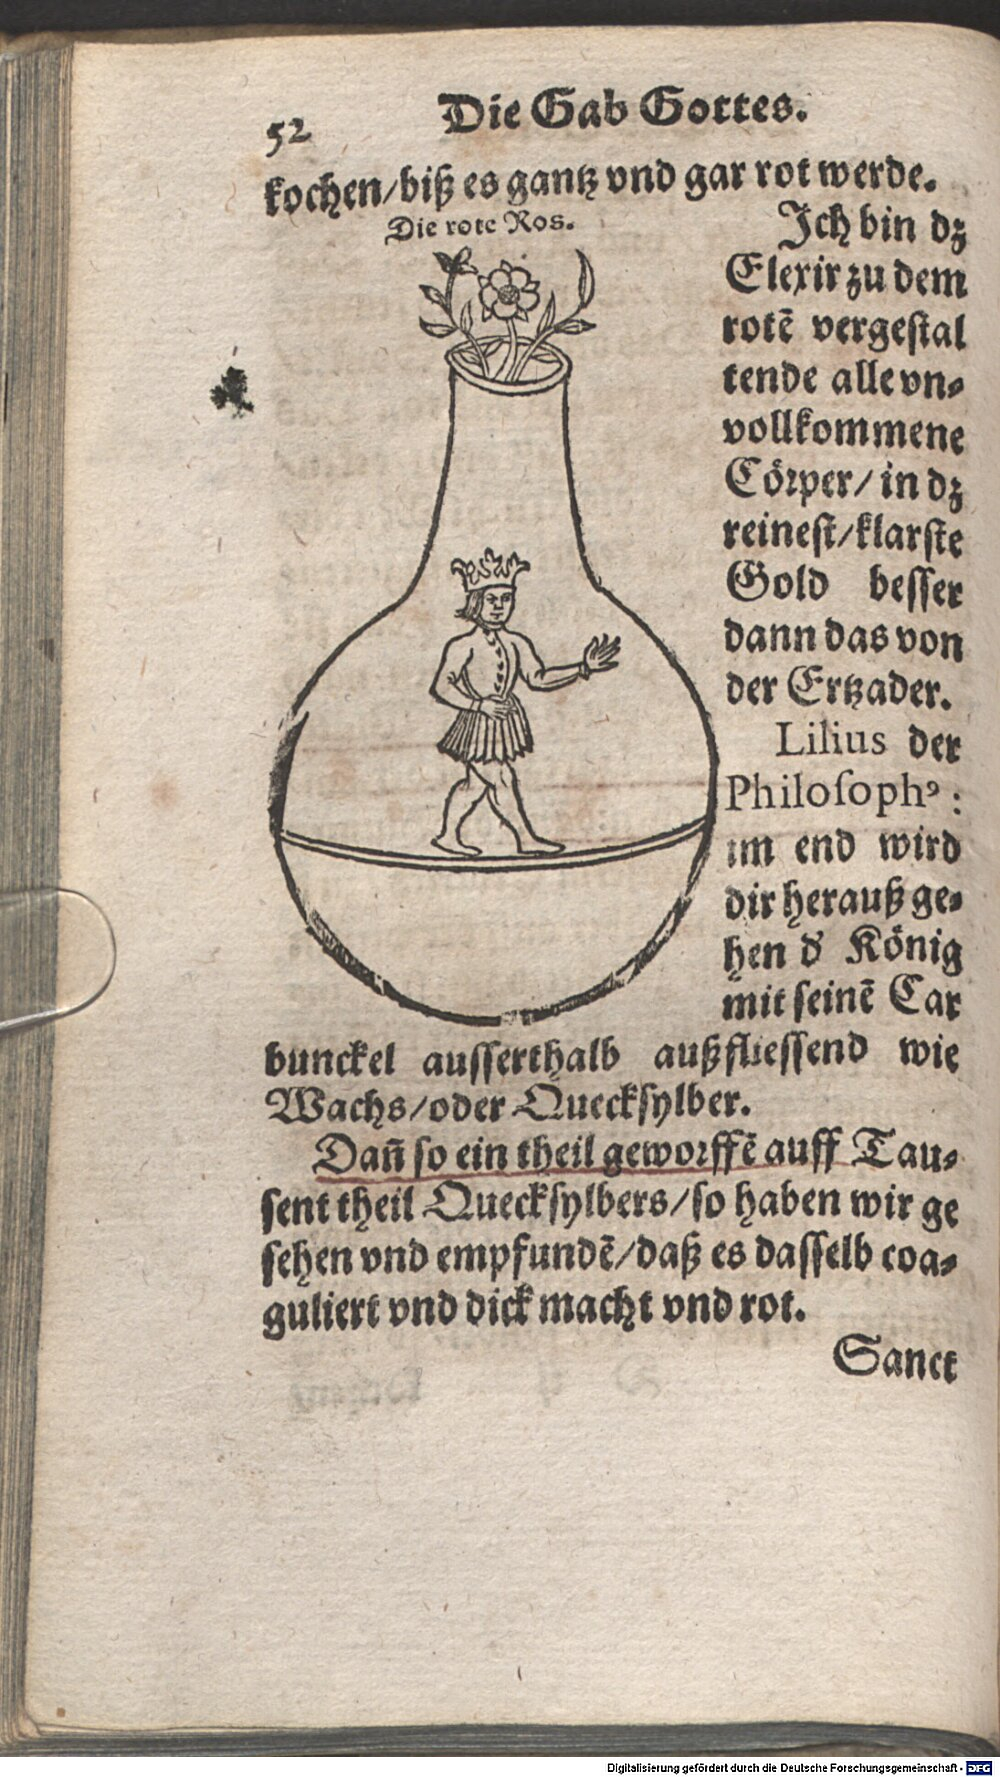 52
Die Gab Gottes.
kochen/biß es gantz vnd gar rot werde.
Die rote Ros.
Ich bin dz
Elexir zu dem
rotē vergestal
tende alle vn⸗
vollkommene
Cörper/ in dz
reinest/klarste
Gold besser
dann das von
der Ertzader.
Lilius der
Philosophꝰ:
im end wird
dir herauß ge⸗
hen d' König
mit seinē Car
bunckel ausserthalb außfliessend wie
Wachs/oder Quecksylber.
Dañ so ein theil geworffē auff Tau⸗
sent theil Quecksylbers/so haben wir ge
sehen vnd empfundē/daß es dasselb coa⸗
guliert vnd dick macht vnd rot.
Sanct
Digitalisierung gefördert durch die Deutsche Forschungsgemeinschaft - DFG